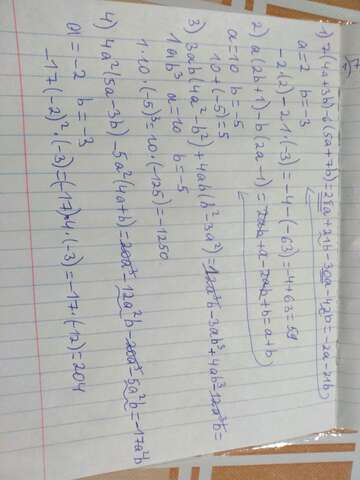 1) 7(4a+3b)-6(5a+7b)=28a+21b-30a-42b=-2a-21b
a=2 b=-3
-2·(2)-21·(-3)=-4-(-63)=-4+63=59
2) a(2b+1)-b(2a-1)=2ab+a-2ab+b=a+b
a=10 b=-5
10+(-5)=5
3) 3ab(4a²-b²)+4ab(b²-3a²)=12a³b-3ab³+4ab³-12a³b=
1ab³ a=10 b=-5
1·10·(-5)³=10·(-125)=-1250
4) 4a²(5a-3b)-5a²(4a+b)=20a³-12a²b-20a³-5a²b=-17a²b
a=-2 b=-3
-17(-2)²·(-3)=(-17)·4·(-3)=-17·(-12)=204